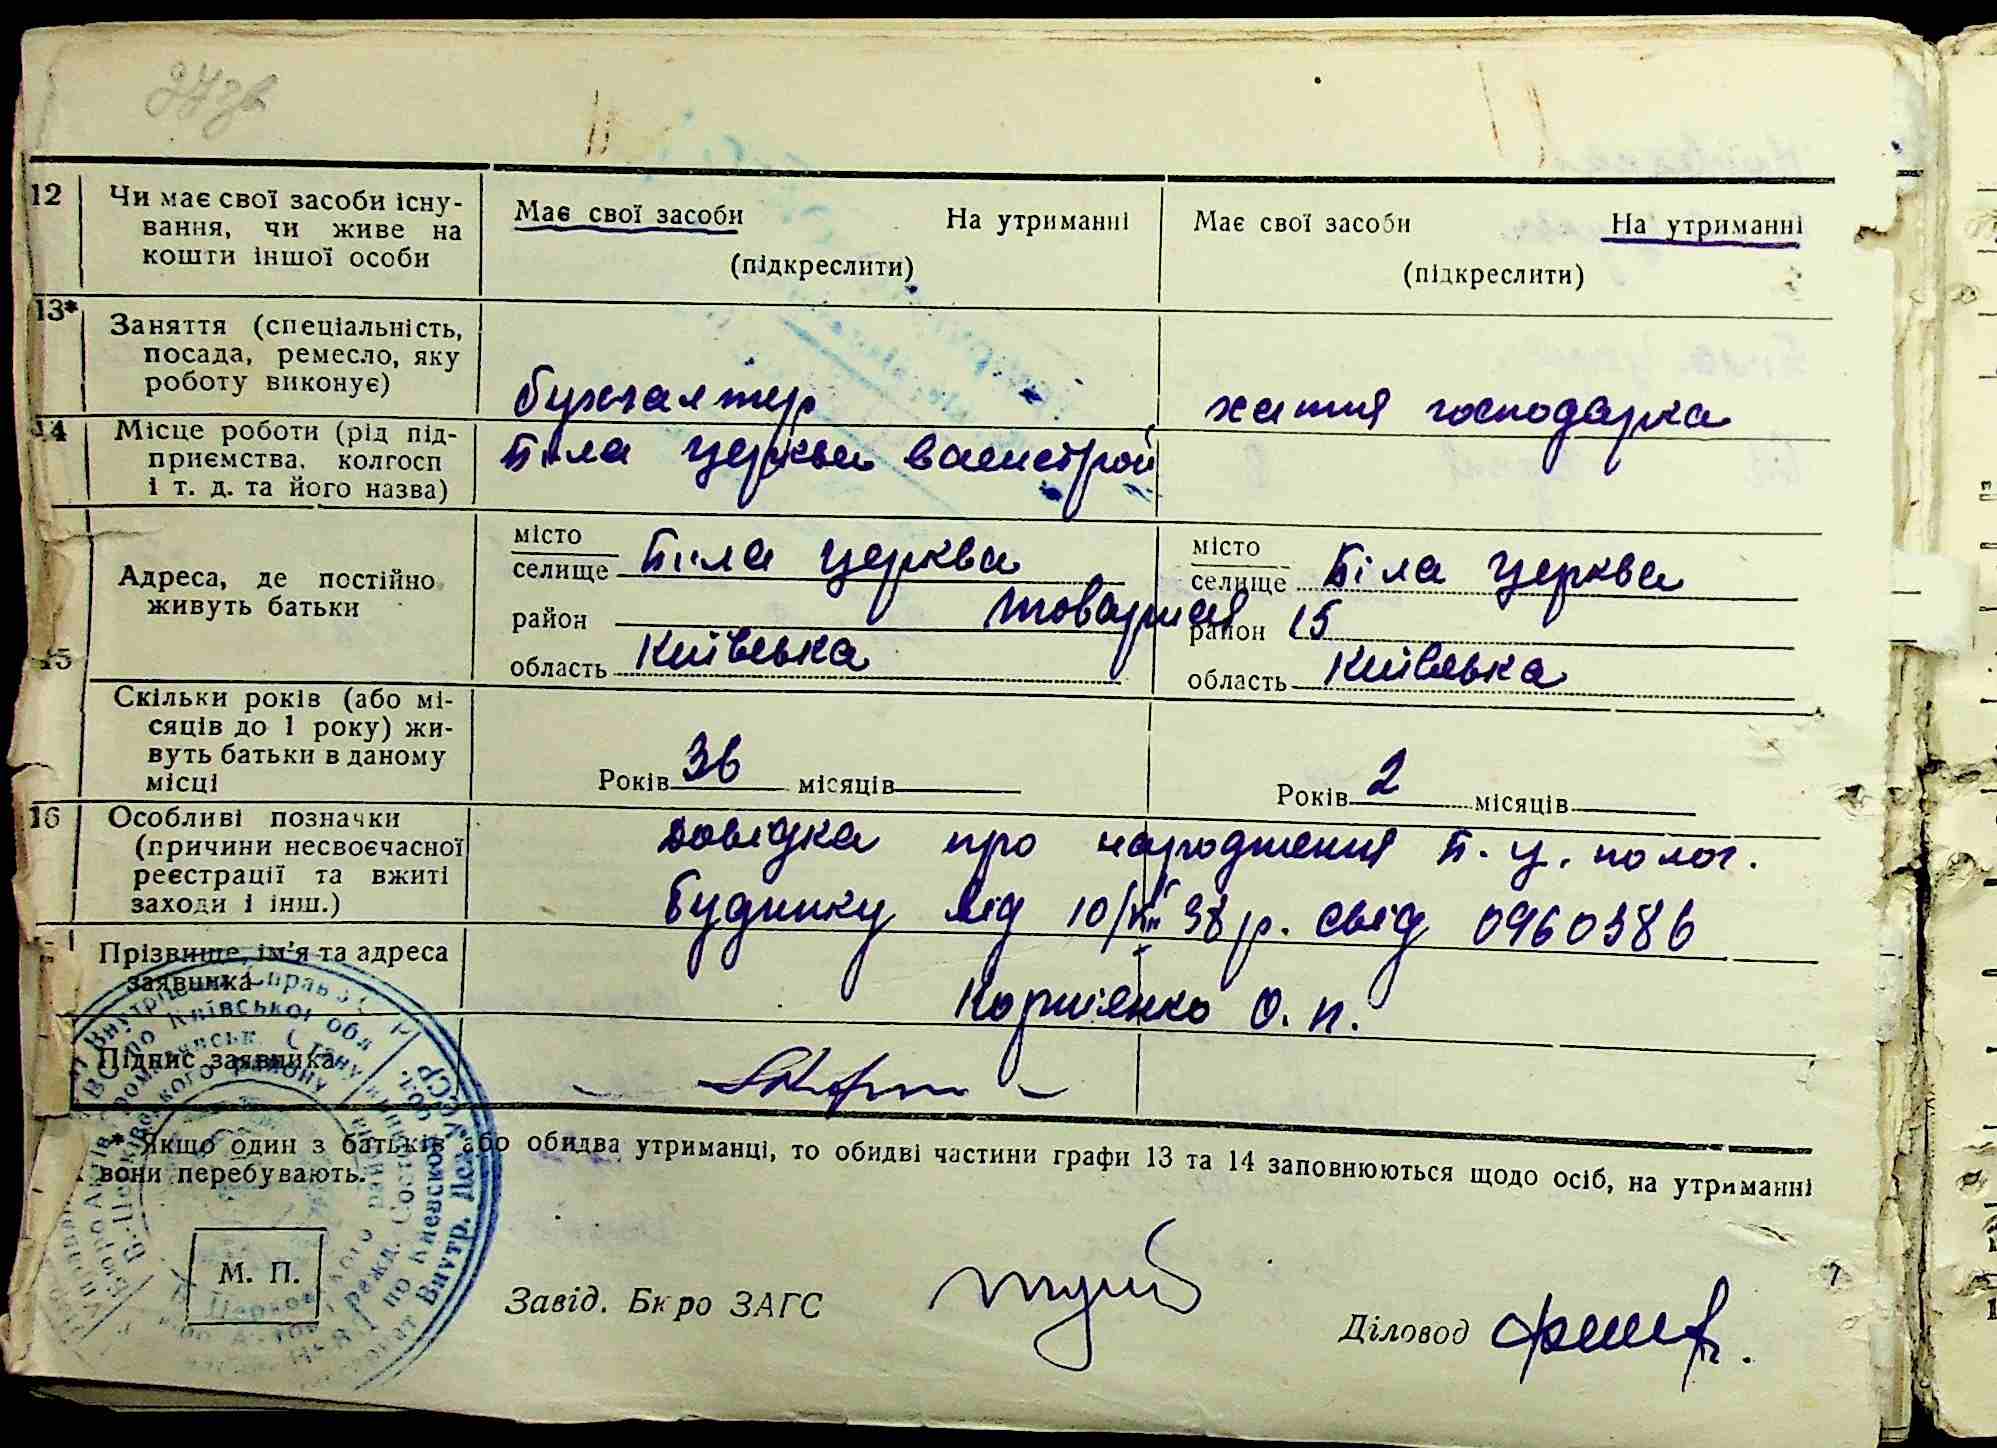 273в
12 Чи має свої засоби існу-
вання, чи живе на
кошти іншої особи
Має свої засоби На утриманні
(підкреслити)
Має свої засоби На утриманні
(підкреслити)
13* Заняття (спеціальність,
посада, ремесло, яку
роботу виконує)
бухгалтер
хатня господарка
14 Місце роботи (рід під-
приємства, колгосп
і т. д. та його назва)
Біла церква
Адреса, де постійно
живуть батьки
15
місто
селище Біла церква
район Товарная
область Київська
місто
селище Біла церква
район 15
область Київська
Скільки років (або мі-
сяців до 1 року) жи-
вуть батьки в даному
місці
Років 36 місяців
Років 2 місяців
16 Особливі позначки
(причини несвоєчасної
реєстрації та вжиті
заходи і інш.)
Довідка про народження Б. Ц. полог.
будинку від 10/ 38 р. свід 0960386
Прізвище, ім'я та адреса
заявника
Корнієнко О. П.
Підпис заявника
* Якщо один з батьків або обидва утриманці, то обидві частини графи 13 та 14 заповнюються щодо осіб, на утриманні
вони перебувають.
М. П.
Завід. Бюро ЗАГС
Діловод